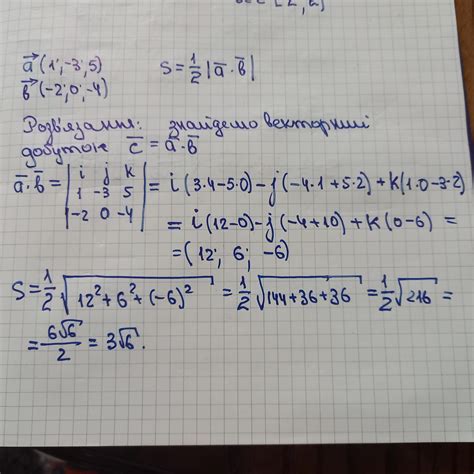 a⃗ (1; -3; 5)
b⃗ (-2; 0; -4)
S = 1/2 |a̅ · b̅|
Розв'язання: знайдемо векторний
добуток c̅ = a̅ · b̅
a̅ · b̅ = | i j k ; 1 -3 5 ; -2 0 -4 | = i(3·4-5·0)-j(-4·1+5·2)+k(1·0-3·2)
= i(12-0)-j(-4+10)+k(0-6) =
= (12; 6; -6)
S = 1/2 √(12² + 6² + (-6)²) = 1/2 √(144+36+36) = 1/2 √216 =
= 6√6/2 = 3√6.